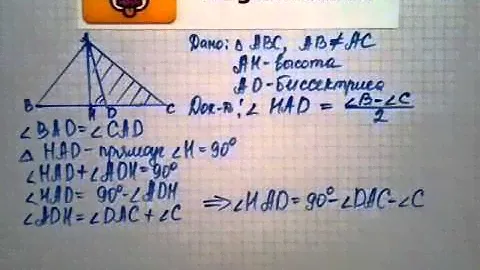 Дано: △ ABC, AB ≠ AC
AH - высота
AD - биссектриса
Док-ть: ∠ HAD = (∠B - ∠C)/2
A
B H D C
∠BAD = ∠CAD
△ HAD - прямоуг ∠H = 90°
∠HAD + ∠ADH = 90°
∠HAD = 90° - ∠ADH
∠ADH = ∠DAC + ∠C ⇒ ∠HAD = 90° - ∠DAC - ∠C